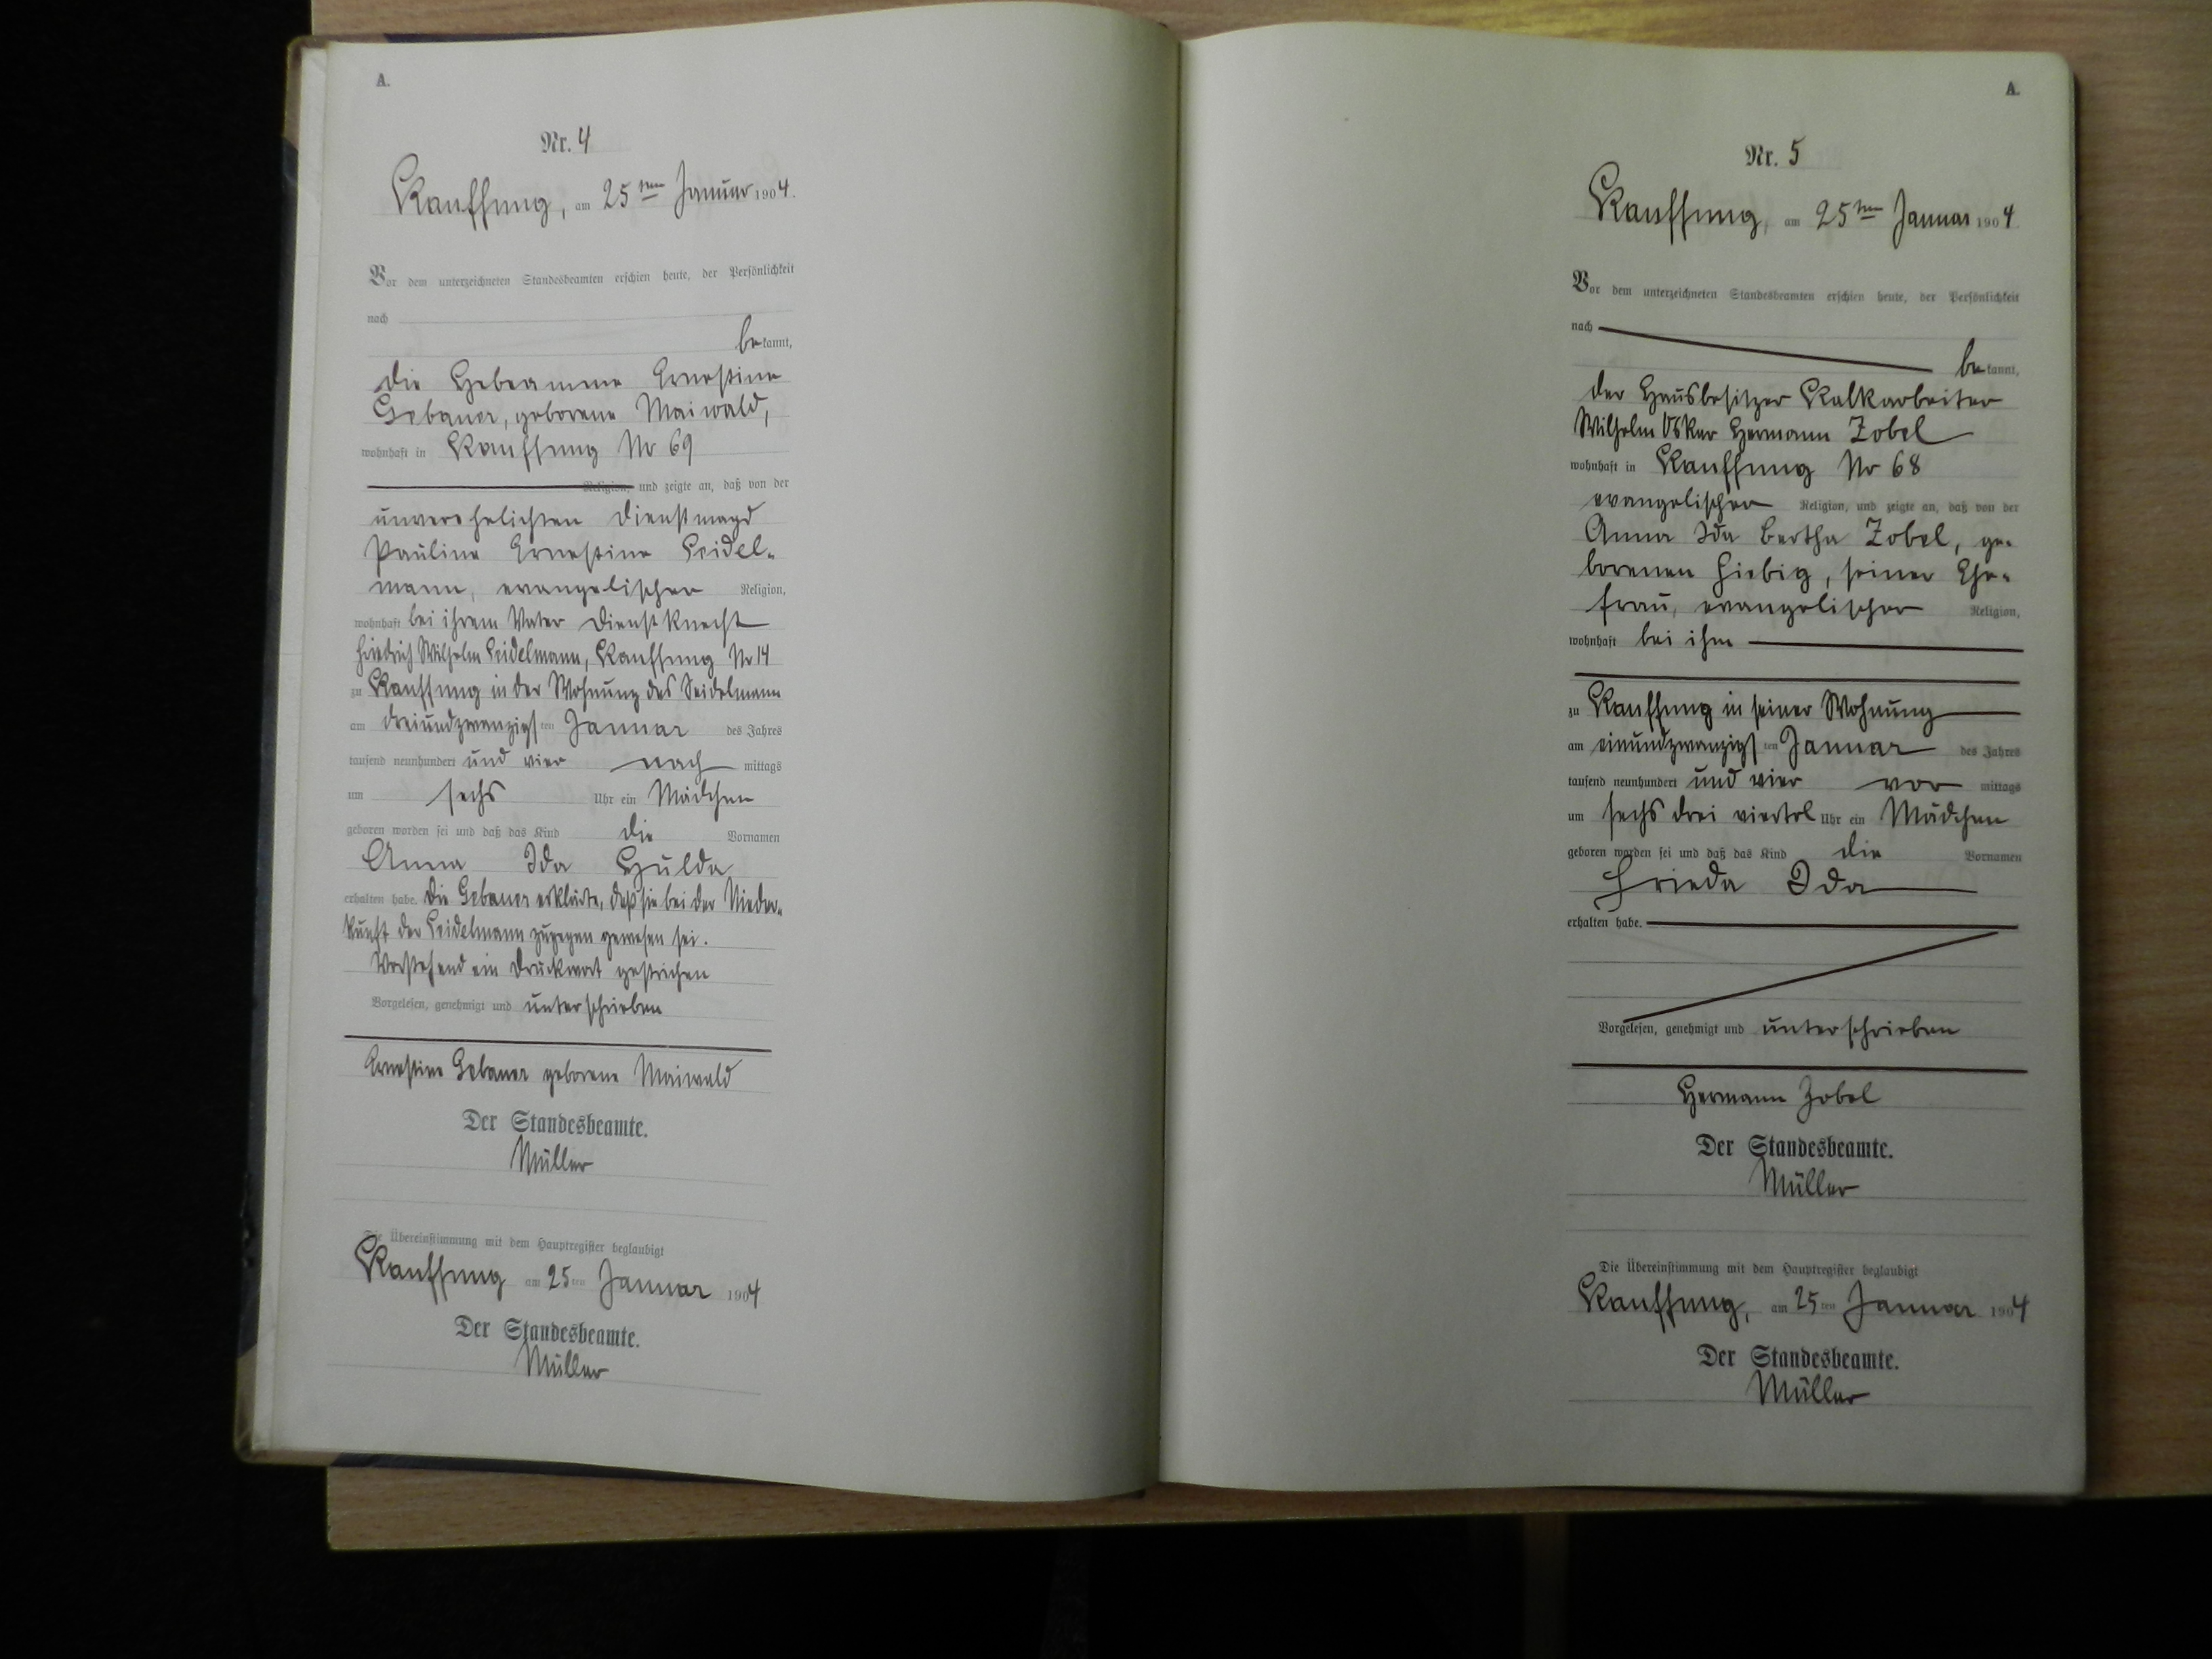 A.
Nr. 4
Kauffung, am 25ten Januar 1904.
Vor dem unterzeichneten Standesbeamten erschien heute, der Persönlichkeit
nach
bekannt,
die Hebeamme Ernestine
Gebauer, geborene Maiwald,
wohnhaft in Kauffung Nr 69
Religion, und zeigte an, daß von der
unverehelichten Dienstmagd
Pauline Ernestine Seidel-
mann, evangelischer Religion,
wohnhaft bei ihrem Vater Dienstknecht
Friedrich Wilhelm Seidelmann, Kauffung Nr 14
zu Kauffung in der Wohnung des Seidelmann
am dreiundzwanzigsten Januar des Jahres
tausend neunhundert und vier nachmittags
um sechs Uhr ein Mädchen
geboren worden sei und daß das Kind die Vornamen
Anna Ida Hulda
erhalten habe. Die Gebauer erklärte, daß sie bei der Nieder-
kunft der Seidelmann zugegen gewesen sei.
Vorstehend ein Druckwort gestrichen
Vorgelesen, genehmigt und unterschrieben
Ernestine Gebauer geborene Maiwald
Der Standesbeamte.
Müller
Die Übereinstimmung mit dem Hauptregister beglaubigt
Kauffung am 25ten Januar 1904
Der Standesbeamte.
Müller
A.
Nr. 5
Kauffung, am 25ten Januar 1904.
Vor dem unterzeichneten Standesbeamten erschien heute, der Persönlichkeit
nach
bekannt,
der Hausbesitzer Kalkarbeiter
Wilhelm Oskar Hermann Zobel
wohnhaft in Kauffung Nr 68
evangelischer Religion, und zeigte an, daß von der
Anna Ida Bertha Zobel, ge-
borenen Fiebig, seiner Ehe-
frau, evangelischer Religion,
wohnhaft bei ihm
zu Kauffung in seiner Wohnung
am einundzwanzigsten Januar des Jahres
tausend neunhundert und vier vormittags
um sechs drei viertel Uhr ein Mädchen
geboren worden sei und daß das Kind die Vornamen
Frieda Ida
erhalten habe.
Vorgelesen, genehmigt und unterschrieben
Hermann Zobel
Der Standesbeamte.
Müller
Die Übereinstimmung mit dem Hauptregister beglaubigt
Kauffung, am 25ten Januar 1904
Der Standesbeamte.
Müller